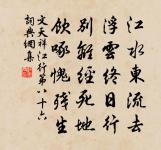 江水東流去
浮雲終日行
別離經死地
飲啄愧殘生
文天祥江行第八十六
詞典網集